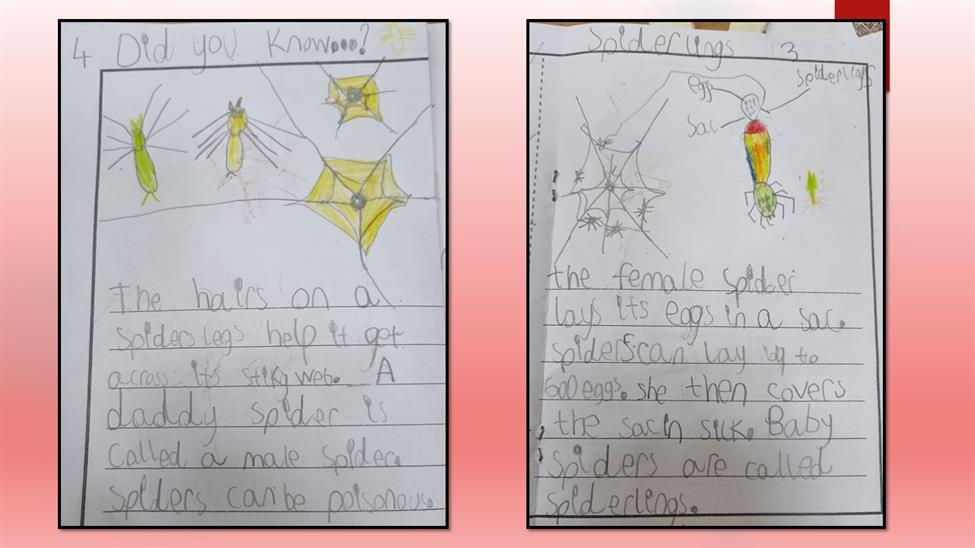 4 Did you Know...?
the hairs on a
spiders legs help it get
across its stiky web. A
daddy spider is
called a male spider.
spiders can be poisonous.
Spiderlings 3
eggs
spiderlings
Sac
the female spider
lays its eggs in a sac.
spiders can lay up to
600 eggs. she then covers
the sac in silk. Baby
spiders are called
spiderlings.